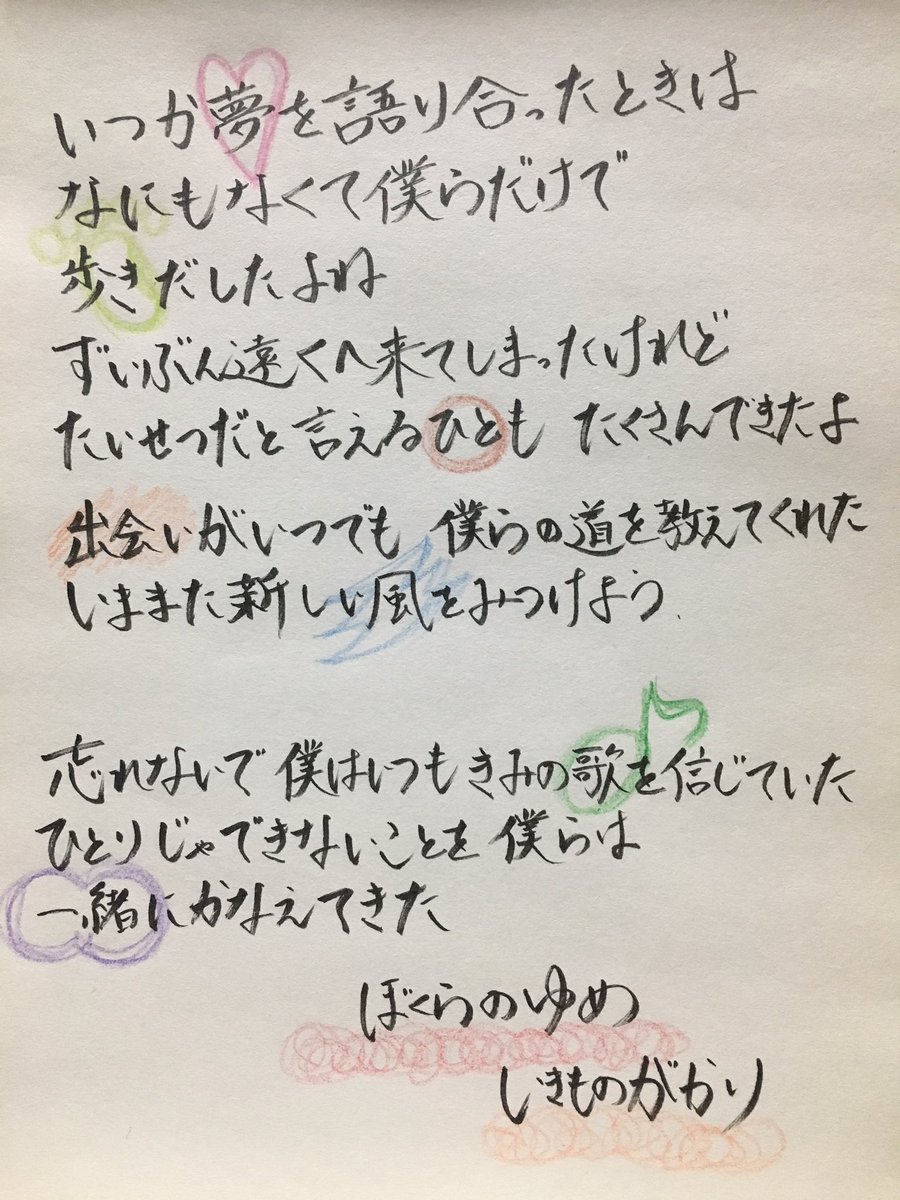 いつか夢を語り合ったときは
なにもなくて僕らだけで
歩きだしたよね
ずいぶん遠くへ来てしまったけれど
たいせつだと言えるひとも たくさんできたよ
出会いがいつでも 僕らの道を教えてくれた
いままた新しい風をみつけよう
忘れないで 僕はいつもきみの歌を信じていた
ひとりじゃできないことを 僕らは
一緒にかなえてきた
ぼくらのゆめ
いきものがかり